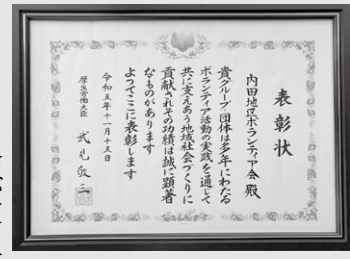 表彰状
内田地区ボランティア会 殿
貴グループ・団体は多年にわたる
ボランティア活動の実践を通じて
共に支えあう地域社会づくりに
貢献されその功績は誠に顕著
なものがあります
よってここに表彰します
令和五年十一月十五日
厚生労働大臣 武見敬三